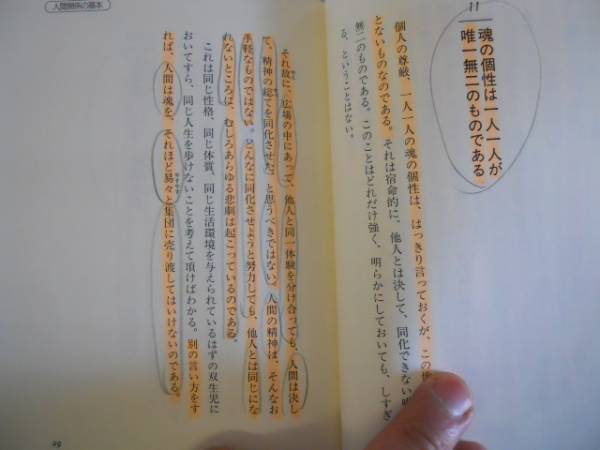 11
魂の個性は一人一人が
唯一無二のものである
個人の尊厳、一人一人の魂の個性は、はっきり言っておくが、この世
とないものなのである。それは宿命的に、他人とは決して、同化できない唯
無二のものである。このことはどれだけ強く、明らかにしておいても、しすぎ
る、ということはない。
人間関係の基本
それ故に、広場の中にあって、他人と同一体験を分け合っても、人間は決し
て、精神の総てを同化させた、と思うべきではない。人間の精神は、そんなお
手軽なものではない。どんなに同化させようと努力しても、他人とは同じにな
れないところに、むしろあらゆる悲劇は起こっているのである。
これは同じ性格、同じ体質、同じ生活環境を与えられているはずの双生児に
おいてすら、同じ人生を歩けないことを考えて頂けばわかる。別の言い方をす
れば、人間は魂を、それほど易々と集団に売り渡してはいけないのである。
29